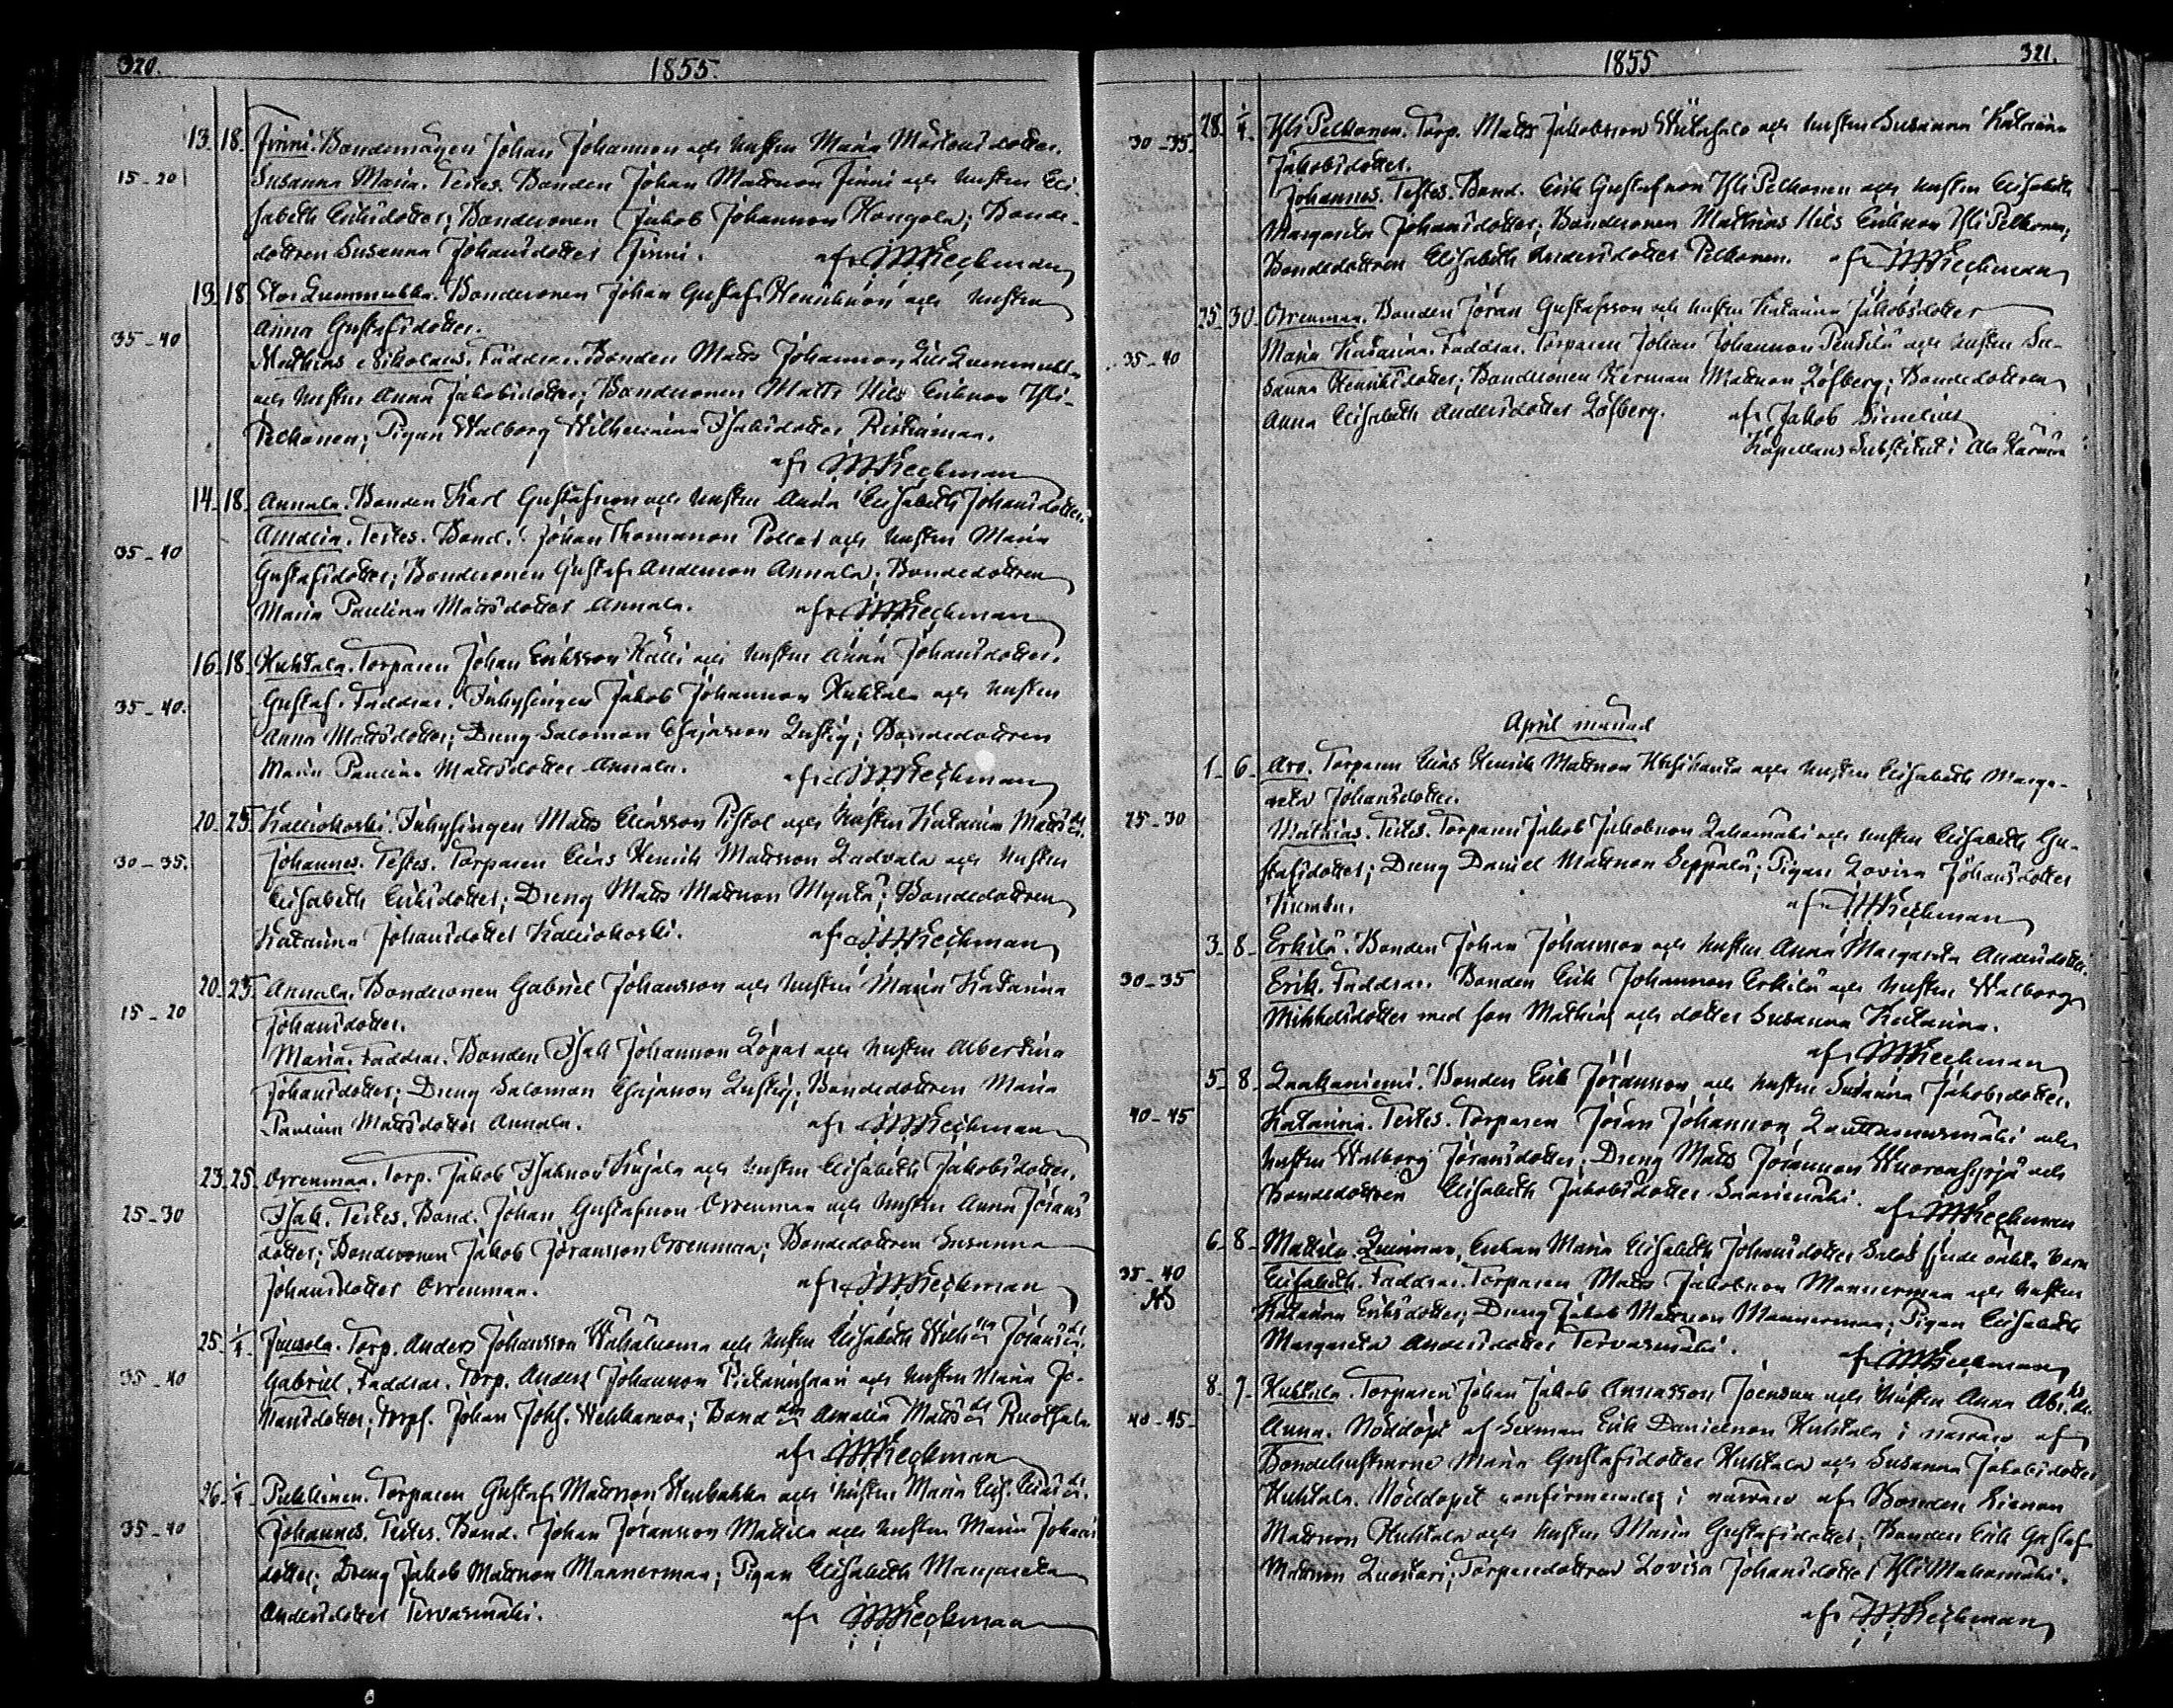 320.
1855.
13. 18. Finni. Bondemågen Johan Johansson och hustru Maria Mårtensdotter.
15-20 Susanna Maria. Testes. Bonden Johan Mattsson Finni och hustru Eli-
sabeth Eriksdotter; Bondesonen Jakob Johansson Kangola; Bonde-
dottren Susanna Johansdotter Finni. af
13. 18. Stor Lummukka. Bondesonen Johan Gustaf Henriksson och hustru
Anna Gustafsdotter.
35-40 Mathias Nikolaus. Faddrar. Bonden Matts Johansson Lill Lummukka
och hustru Anna Jakobsdotter; Bondesonen Matts Nils Eriksson Yli-
Pelkonen; Pigan Walborg Wilhelmina Isaksdotter Ristimaa.
af
14. 18. Annala. Bonden Karl Gustafsson och hustru Anna Elisabeth Johansdotter.
35-40 Amalia. Testes. Bond. Johan Thomasson Pollari och hustru Maria
Gustafsdotter; Bondesonen Gustaf Andersson Annala; Bondedottren
Maria Paulina Mattsdotter Annala. af
16. 18. Huhtala. Torparen Johan Eriksson Kalli och hustru Anna Johansdotter.
35-40. Gustaf. Faddrar. Inhysingen Jakob Johansson Huhtala och hustru
Anna Mattsdotter; Dreng Salomon Esajasson Lustig; Bondedottren
Maria Paulina Mattsdotter Annala. af
20. 25. Kalliokoski. Inhysingen Matts Eliasson Pistol och hustru Katarina Mattsdr.
30-35. Johannes. Testes. Torparen Elias Henrik Mattsson Ladvala och hustru
Elisabeth Eriksdotter; Dreng Matts Mattsson; Bondedottren
Katarina Johansdotter Kalliokoski. af
20. 25. Annala. Bondesonen Gabriel Johansson och hustru Maria Katarina
15-20 Johansdotter.
Maria. Faddrar. Bonden Isak Johansson och hustru Albertina
Johansdotter; Dreng Salomon Esajasson Lustig; Bondedottren Maria
Paulina Mattsdotter Annala. af
23. 25. Orrenmaa. Torp. Jakob Isaksson Kujala och hustru Elisabeth Jakobsdotter.
25-30 Isak. Testes. Bond. Johan Gustafsson Orrenmaa och hustru Anna Jörans
dotter; Bondesonen Jakob Jöransson Orrenmaa; Bondedottren Susanna
Johansdotter Orrenmaa. af
25. 1/4 Juusola. Torp. Anders Johansson och hustru Elisabeth Jöransdr.
35-40 Gabriel. Faddrar. Torp. Anders Johansson och hustru Maria Jo-
hansdotter; Torps. Johan Johs. Wehkamaa; Bond dr. Amalia Mattsdr.
af
26. 1/4 Puhkinen. Torparen Gustaf Mattsson och hustru Maria Elis.
35-40 Johannes. Testes. Bond. Johan Jöransson Mattila och hustru Maria Johans
dotter; Dreng Jakob Mattsson Mannerman; Pigan Elisabeth Margareta
Andersdotter Tervasmäki. af
1855
321.
28. 1/4 Yli Pelkonen. Torp. Matts Jakobsson och hustru Susanna Katarina
30-35. Jakobsdotter.
Johannes. Testes. Bond. Erik Gustafsson Yli Pelkonen och hustru Elisabeth
Margareta Johansdotter; Bondesonen Mathias Nils Eriksson Yli Pelkonen;
Bondedottren Elisabeth Andersdotter Pelkonen. af
25. 30. Orrenmaa. Bonden Jöran Gustafsson och hustru Katarina Jakobsdotter
35-40 Maria Katarina. Faddrar. Torparen Johan Johansson Penttilä och hustru Su-
sanna Henriksdotter; Bondesonen Herman Mattsson Löfberg; Bondedottren
Anna Elisabeth Andersdotter Löfberg. af Jakob
Kapellans Substitut i Ala Härmä
April månad
1. 6. Aro. Torparen Elias Henrik Mattsson och hustru Elisabeth Marga-
reta Johansdotter.
25-30 Mathias. Testes. Torparen Jakob Jakobsson och hustru Elisabeth Gu-
stafsdotter; Dreng Daniel Mattsson Seppälä; Pigan Lovisa Johansdotter
af
3. 8. Erkilä. Bonden Johan Johansson och hustru Anna Margareta Andersdotter.
30-35 Erik. Faddrar. Bonden Erik Johansson Erkilä och hustru Walborg
Mikkelsdotter med son Mathias och dotter Susanna Katarina.
af
5. 8. Laakaniemi. Bonden Erik Jöransson och hustru Susanna Jakobsdotter.
40-45 Katarina. Testes. Torparen Jöran Johansson Lauttamusmäki och
hustru Walborg Jöransdotter; Dreng Matts Jöransson och
Bondedottren Elisabeth Jakobsdotter Saarimäki. af
6. 8. Mattila. Enkan Maria Elisabeth Johansdotter oäkta barn
35-40 Elisabeth. Faddrar. Torparen Matts Jakobsson Mannerman och hustru
Katarina Eriksdotter; Dreng Jakob Mattsson Mannerman; Pigan Elisabeth
Margareta Andersdotter Tervasmäki. af
8. 9. Huhtala. Torparen Johan Jakob Joensuu och hustru Anna
40-45 Anna. Nöddöpt af Sexman Erik Danielsson Huhtala i närvaro af
Bondehustrurne Maria Gustafsdotter Huhtala och Susanna Jakobsdotter
Huhtala. Nöddopet confirmerades i närvaro af Bonden Simon
Mattsson Huhtala och hustru Maria Gustafsdotter; Bonden Erik Gustaf
Mattsson Luostari; Torparedottren Lovisa Johansdotter
af